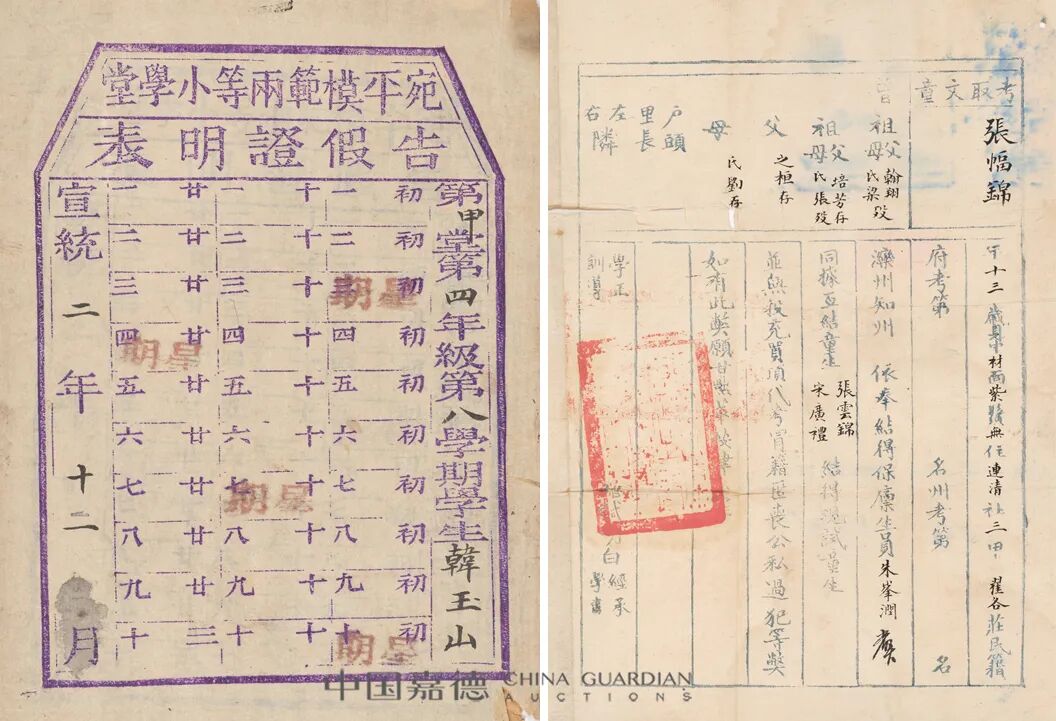 宛平模範兩等小學堂
告假證明表
第甲堂第四年級第八學期學生韓玉山
初一 十一 廿一
初二 十二 廿二
初三 十三 廿三
初四 十四 廿四
初五 十五 廿五
初六 十六 廿六
初七 十七 廿七
初八 十八 廿八
初九 十九 廿九
初十 二十 三十
星期
星期
星期
星期
宣統二年十二月
考取文童
張幅錦
曾祖父翰翔
祖母氏梁歿
祖父培芳存
母氏張歿
父之桓存
母氏劉存
戶頭
里長
左
右隣
年十三歲身中材面紫無 住連清社三甲翟各莊民籍
府考第 名州考第 名
灤州知州 依奉結得保廩生員朱峯潤
同據互結童生 張雲錦 宋廣禮 結得現試童生
並無 充買頂代考冒籍匿喪公私過犯等弊
如有此弊願甘
學正
訓導
經承
學書
中国嘉德 CHINA GUARDIAN
AUCTIONS